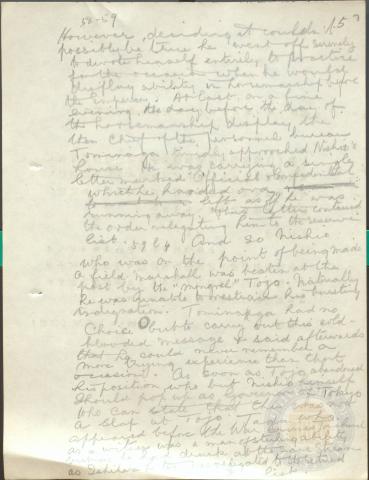 58-59
15
However, deciding it couldn't
possibly be true he went off serenely
to devote himself entirely to practice
for the occasion when he would
display ability in horsemanship before
the Emperor. At last, on an
evening, the day before the day of
the horsemanship display, the
then Chief of the personnel bureau
Tominaga timidly approached Nishio's
house. He was carrying a simple
letter marked "official & confidential"
which he handed over
left as if he was
running away. This letter contained
the order relegating him to the reserve
list. 59 And so Nishio
who was on the point of being made
a field marshall was beaten at the
post by the "mongrel" Tojo. Naturally
he was unable to restrain his bursting
indignation. Tominaga had no
choice but to carry out this cold-
blooded message & said afterwards
that he could never remember a
more trying experience than that
occasion. As soon as Tojo abandoned
his position who but Nishio himself
should pop up as Governor of Tokyo
who can state that this was not
a slap at Tojo.
appeared before the War
as a witness was a man of sterling ability
drunk at the same
as Ishihara to the retired
list.